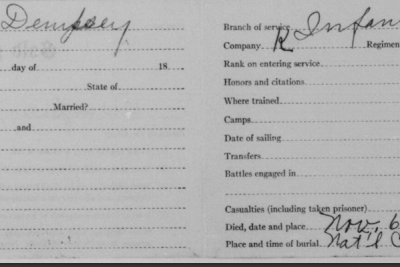 Dempsey
day of 18
State of
Married?
, and
Branch of service Infan
Company K Regimen
Rank on entering service
Honors and citations
Where trained
Camps
Date of sailing
Transfers
Battles engaged in
Casualties (including taken prisoner)
Died, date and place Nov. 6
Place and time of burial Nat'l C